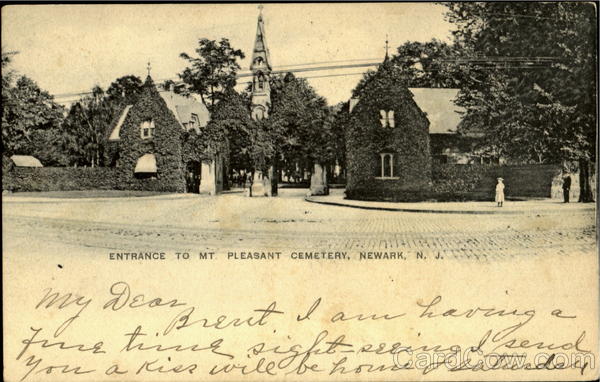 ENTRANCE TO MT. PLEASANT CEMETERY, NEWARK, N. J.
My Dear
Brent I am having a
fine time sight seeing I send
You a Kiss will be home Saturday
CardCow.com